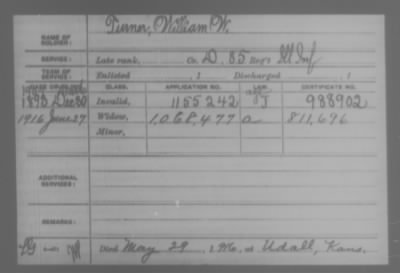 NAME OF SOLDIER: Turner, William W.
SERVICE: Late rank, Co. D, 85 Reg't Ill Inf
TERM OF SERVICE: Enlisted , 1 Discharged , 1
DATE OF FILING. CLASS. APPLICATION NO. LAW. CERTIFICATE NO.
1890 Dec 30 Invalid, 1155242 J 988902
1916 June 27 Widow, 1,068,477 a 811,696
Minor,
ADDITIONAL SERVICES:
REMARKS:
Died May 29, 1916, at Udall, Kans.